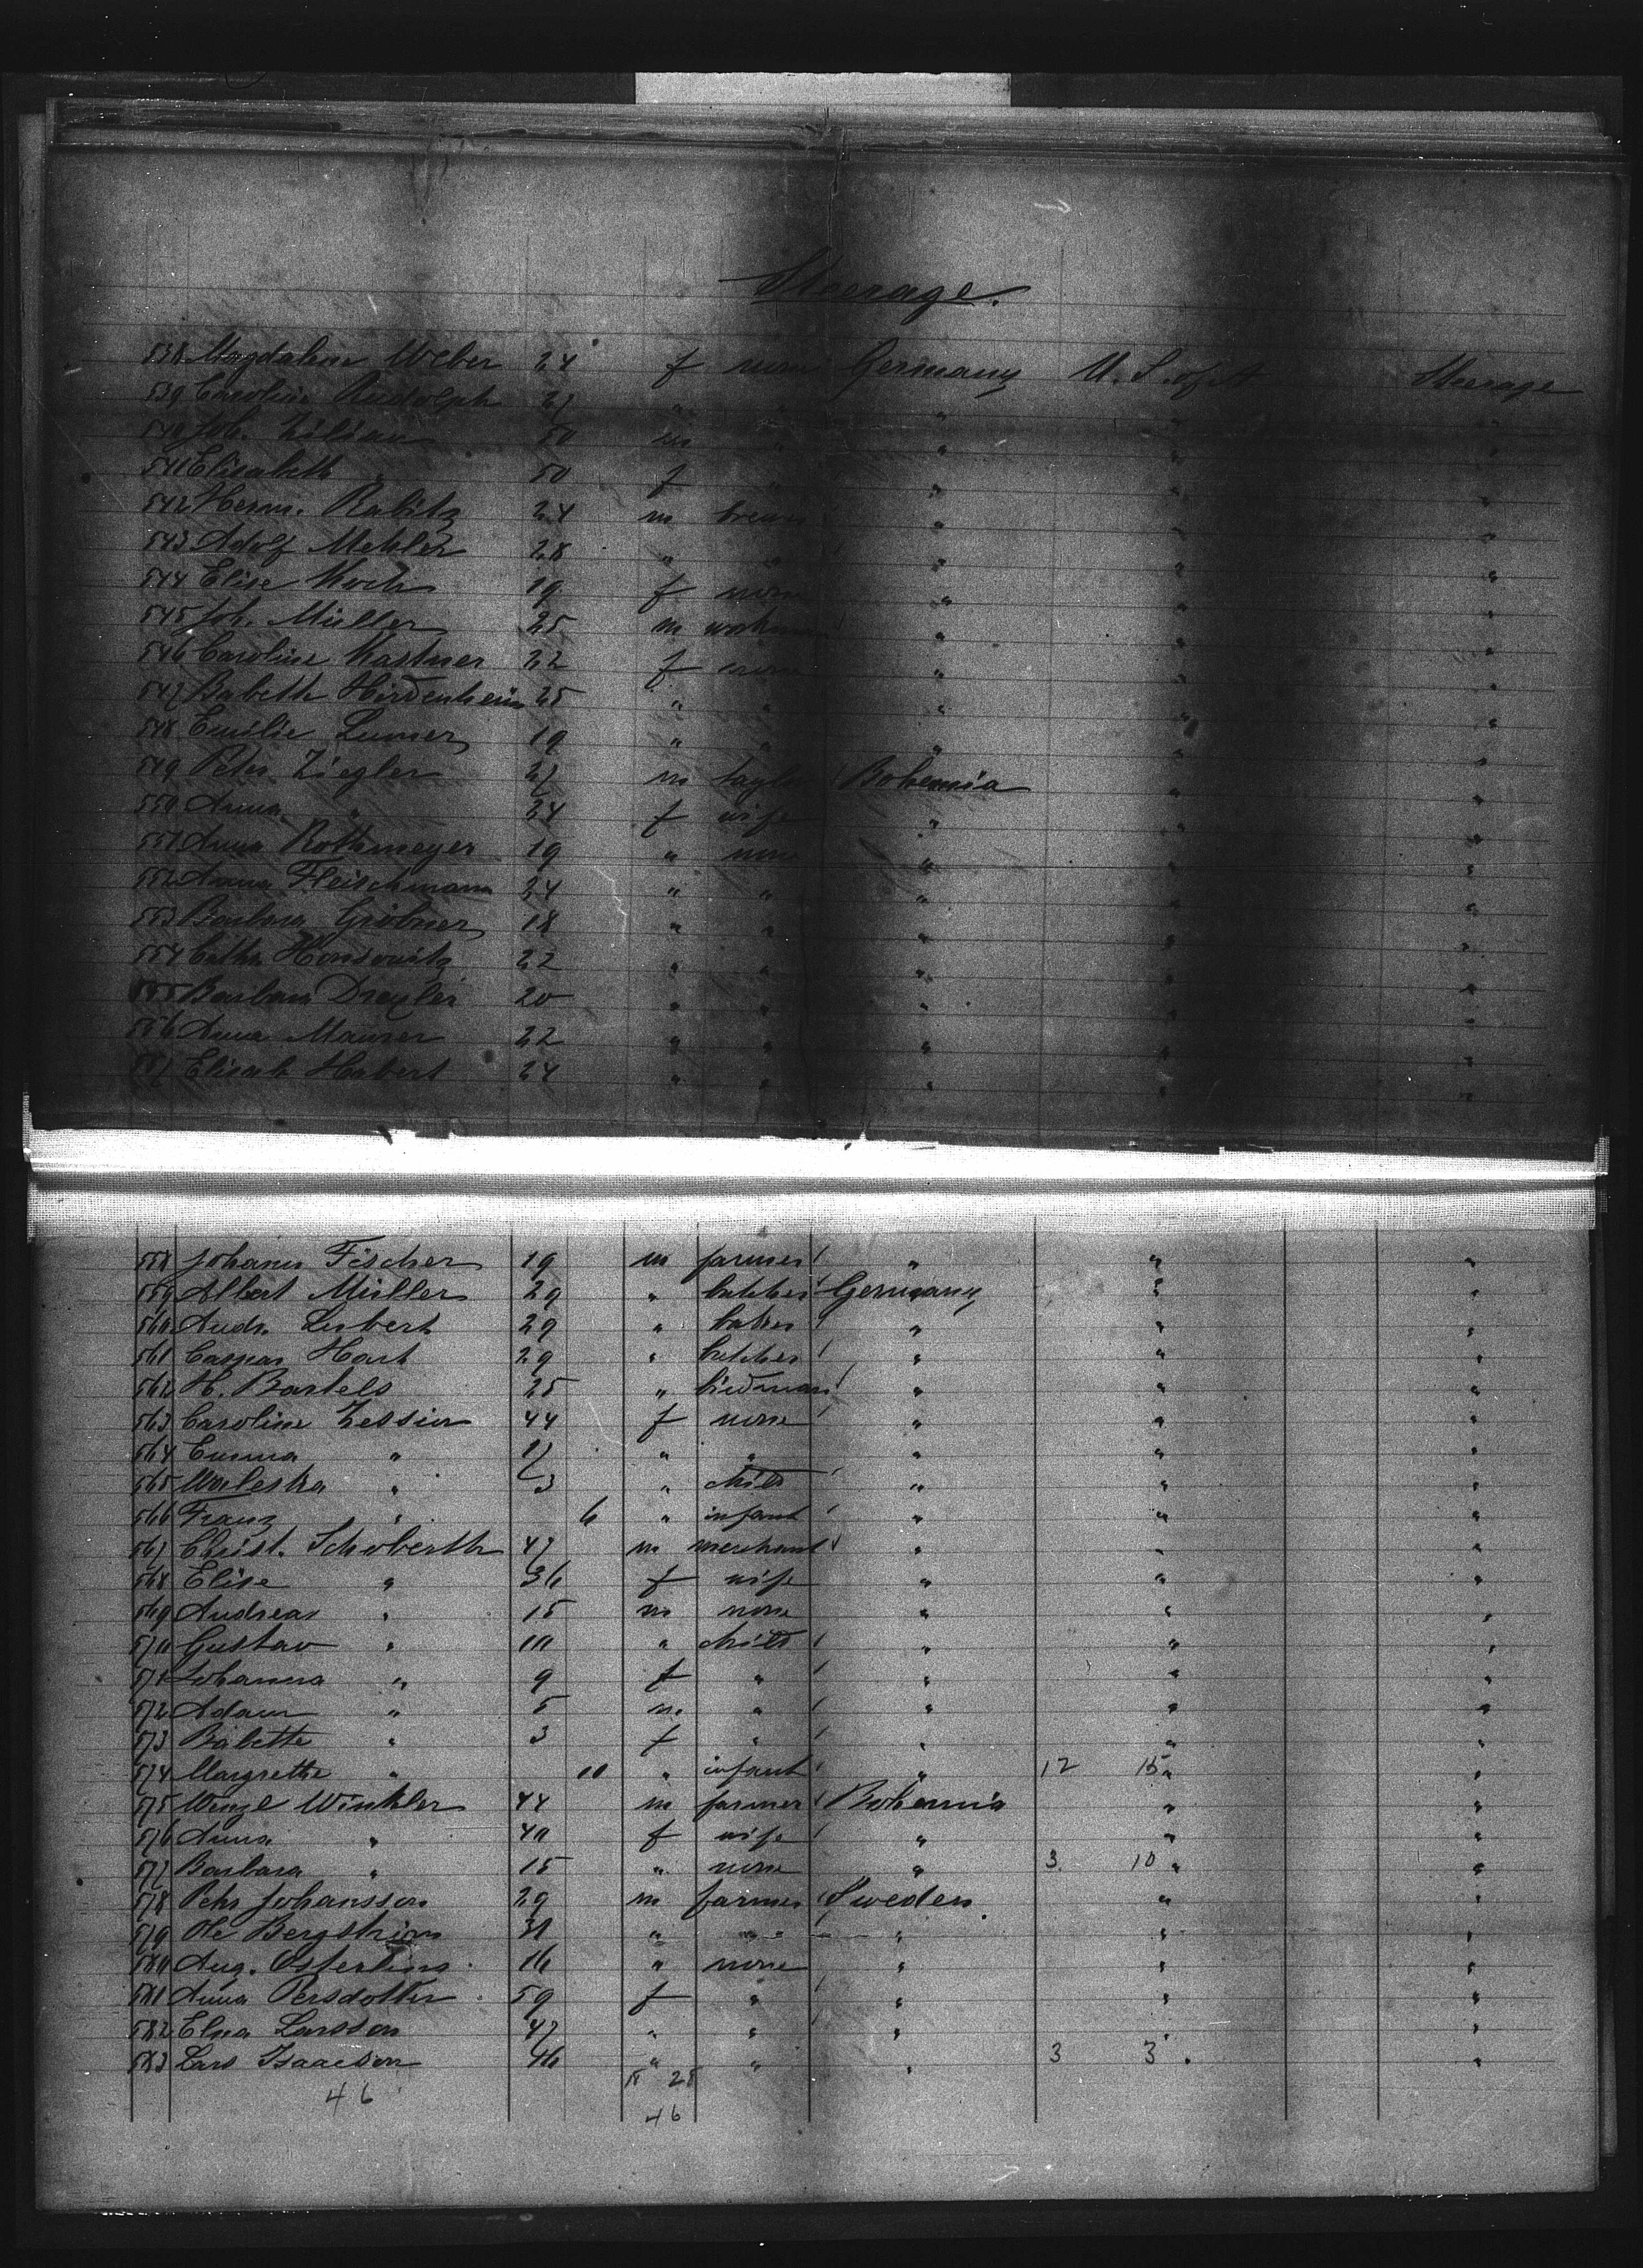 Steerage.
538 Magdalena Weber 24 f none Germany U. S. of A Steerage
539 Caroline Rudolph 27 " " " " "
540 Joh. Zilian 50 m " " " "
541 Elisabeth " 50 f " " " "
542 Herm. Rabitz 24 m brewer " " "
543 Adolf Mehler 28 " " " " "
544 Elise Koch 19 f none " " "
545 Joh. Müller 25 m workman " " "
546 Caroline Kastner 22 f none " " "
547 Babeth Herdenheim 25 " " " " "
548 Emilie Lumer 19 " " " " "
549 Peter Ziegler 27 m taylor Bohemia " "
550 Anna " 24 f wife " " "
551 Anna Rothmeyer 19 " none " " "
552 Anna Fleischmann 24 " " " " "
553 Barbara Gröbner 18 " " " " "
554 Cath. 22 " " " " "
555 Barbara Drexler 20 " " " " "
556 Anna Maurer 22 " " " " "
557 Elisab Habert 24 " " " " "
558 Johann Fischer 19 m farmer " " "
559 Albert Müller 29 " butcher Germany " "
560 Andr. Lubert 29 " baker " " "
561 Caspar Hart 29 " butcher " " "
562 H. Bartels 25 " " " "
563 Caroline Zessin 44 f none " " "
564 Emma " 17 " " " " "
565 Waleska " 3 " child " " "
566 Franz " 6 " infant " " "
567 Christ. Schoberth 47 m merchant " " "
568 Elise " 36 f wife " " "
569 Andreas " 15 m none " " "
570 Gustav " 10 " child " " "
571 Johanna " 9 f " " " "
572 Adam " 5 m. " " " "
573 Babette " 3 f " " " "
574 Margrethe " 10 " infant " 12 15 " "
575 Wenzl Winkler 44 m farmer Bohemia " "
576 Anna " 40 f wife " " "
577 Barbara " 15 " none " 3. 10 " "
578 Pehr Johansson 29 m farmer Sweden " "
579 Ole Bergström 31 " " " " "
580 Aug. Osterling 16 " none " " "
581 Anna Persdotter 59 f " " " "
582 Elna Larsson 47 " " " " "
583 Lars Isaacson 46 " " " 3 3 " "
46 18 28
46